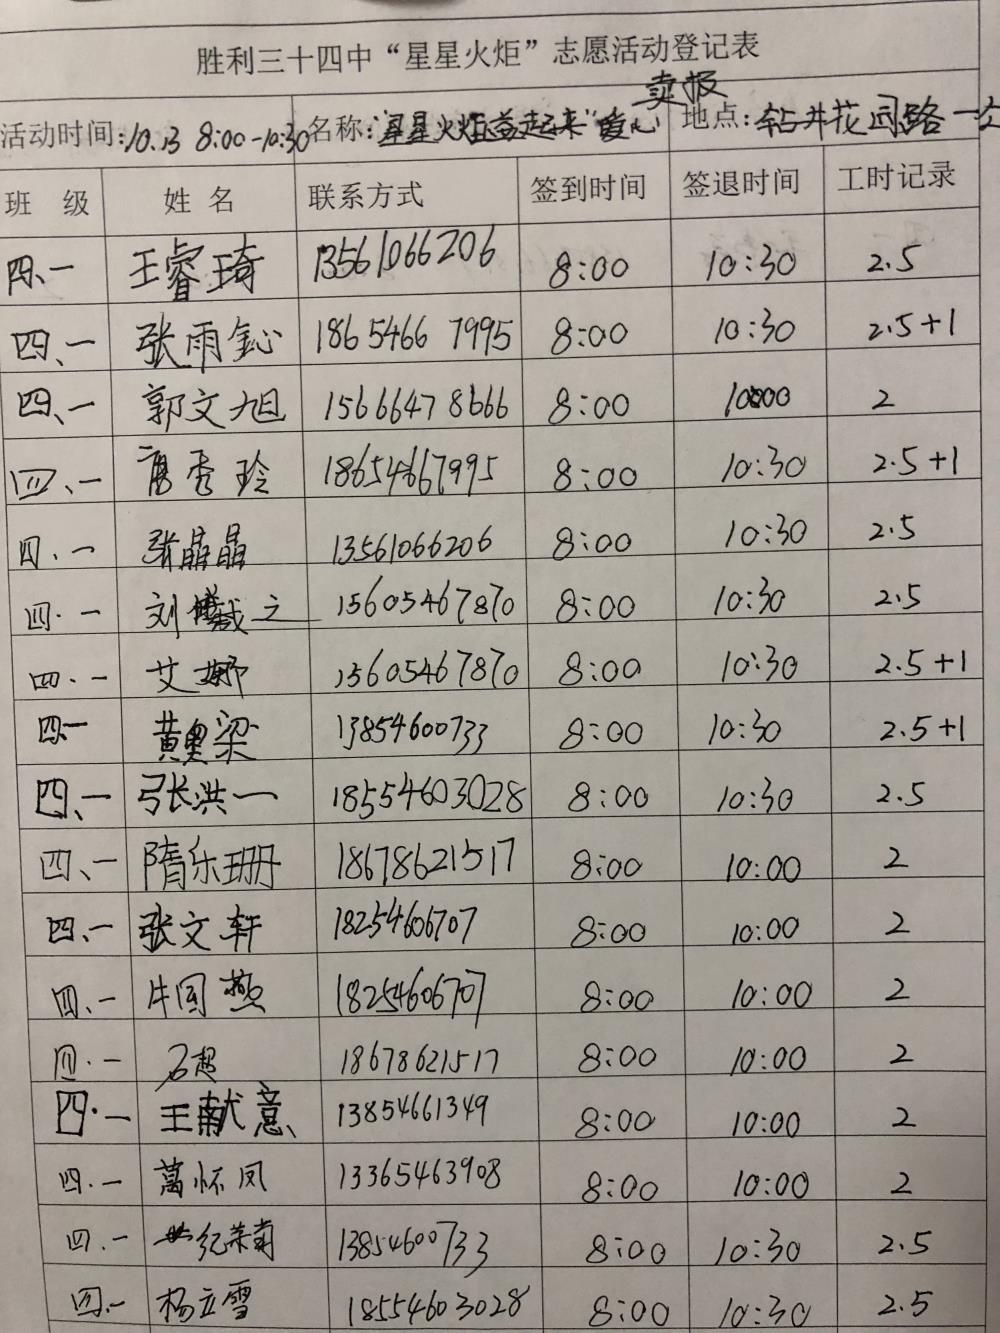 胜利三十四中“星星火炬”志愿活动登记表
卖报
活动时间:10.13 8:00-10:30 名称:“星星火炬益起来”爱心 地点:钻井花园路一农
班 级 姓 名 联系方式 签到时间 签退时间 工时记录
四、一 王睿琦 13561066206 8:00 10:30 2.5
四、一 张雨鈊 18654667995 8:00 10:30 2.5+1
四、一 郭文旭 15666478666 8:00 10:00 2
四、一 秀玲 18654667995 8:00 10:30 2.5+1
四.一 张晶晶 13561066206 8:00 10:30 2.5
四.一 刘之 15605467870 8:00 10:30 2.5
四.一 艾娜 15605467870 8:00 10:30 2.5+1
四一 黄奥梁 13854600733 8:00 10:30 2.5+1
四、一 张洪一 18554603028 8:00 10:30 2.5
四、一 隋乐珊 18678621517 8:00 10:00 2
四、一 张文轩 18254606707 8:00 10:00 2
四、一 牛国燕 18254606707 8:00 10:00 2
四.一 石超 18678621517 8:00 10:00 2
四.一 王献意 13854661349 8:00 10:00 2
四.一 葛怀凤 13365463908 8:00 10:00 2
四.一 纪荣菊 13854600733 8:00 10:30 2.5
四.一 杨立雪 18554603028 8:00 10:30 2.5